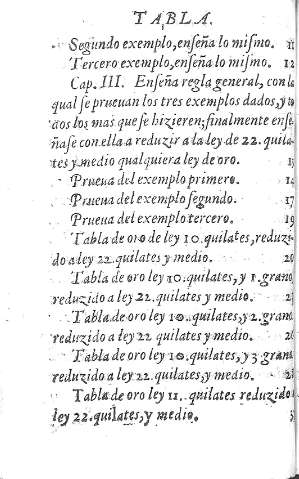 TABLA.
Segundo exemplo, enseña lo mismo. 11
Tercero exemplo, enseña lo mismo. 12
Cap. III. Enseña regla general, con la
qual se prueuan los tres exemplos dados, y to
dos los mas que se hizieren; finalmente ense
ñase con ella a reduzir a la ley de 22. quila-
tes y medio qualquiera ley de oro. 13
Prueua del exemplo primero. 14
Prueua del exemplo segundo. 17
Prueua del exemplo tercero. 19
Tabla de oro de ley 10. quilates, reduzi-
do a ley 22. quilates y medio.
Tabla de oro ley 10. quilates, y 1. grano
reduzido a ley 22. quilates y medio.
Tabla de oro ley 10. quilates, y 2. grano
reduzido a ley 22. quilates y medio.
Tabla de oro ley 10. quilates, y 3. grano
reduzido a ley 22. quilates, y medio.
Tabla de oro ley 11. quilates reduzido a
ley 22. quilates, y medio.